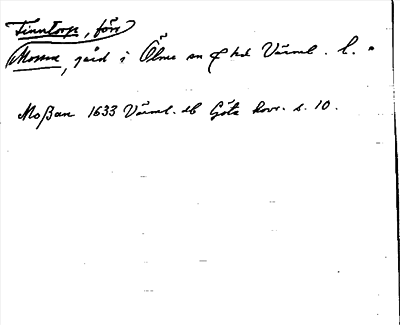 Finntorp, förr
Mosan, gård i Ölme sn o hd Värml. l.
Moßan 1633 Värml. Jb Göta hovr. s. 10.